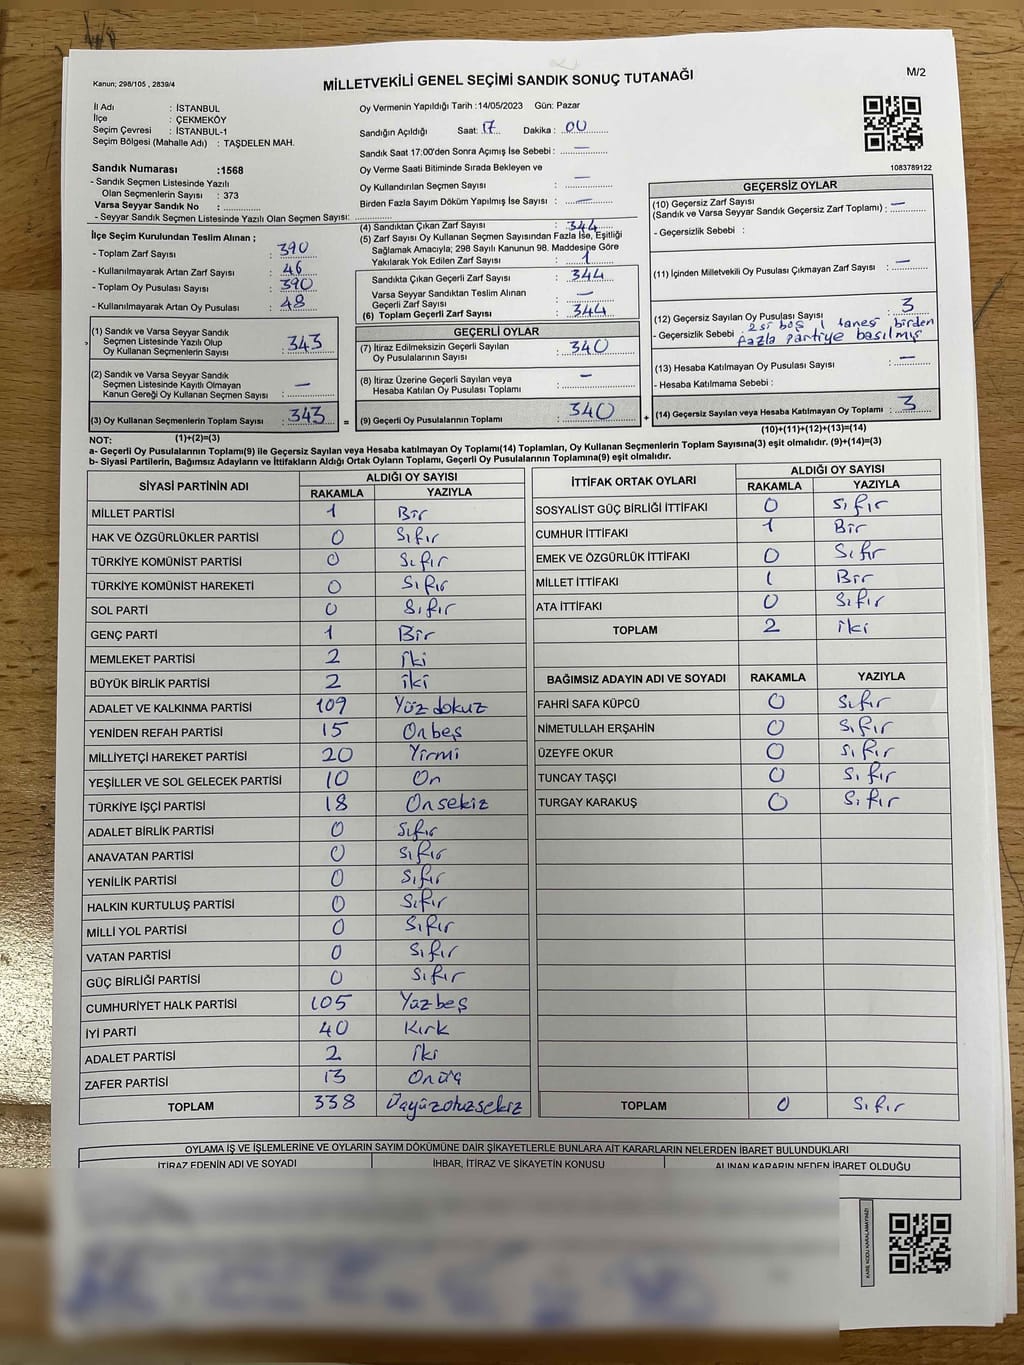 Kanun; 298/105 , 2839/4
MİLLETVEKİLİ GENEL SEÇİMİ SANDIK SONUÇ TUTANAĞI
M/2
İl Adı : İSTANBUL
İlçe : ÇEKMEKÖY
Seçim Çevresi : İSTANBUL-1
Seçim Bölgesi (Mahalle Adı) : TAŞDELEN MAH.
Sandık Numarası :1568
- Sandık Seçmen Listesinde Yazılı
Olan Seçmenlerin Sayısı : 373
Varsa Seyyar Sandık No :
- Seyyar Sandık Seçmen Listesinde Yazılı Olan Seçmen Sayısı:
Oy Vermenin Yapıldığı Tarih :14/05/2023 Gün: Pazar
Sandığın Açıldığı Saat: 17 Dakika : 00
Sandık Saat 17:00'den Sonra Açımış İse Sebebi : —
Oy Verme Saati Bitiminde Sırada Bekleyen ve
Oy Kullandırılan Seçmen Sayısı : —
Birden Fazla Sayım Döküm Yapılmış İse Sayısı : —
1083789122
İlçe Seçim Kurulundan Teslim Alınan ;
- Toplam Zarf Sayısı : 390
- Kullanılmayarak Artan Zarf Sayısı : 46
- Toplam Oy Pusulası : 390
- Kullanılmayarak Artan Oy Pusulası : 48
(1) Sandık ve Varsa Seyyar Sandık
Seçmen Listesinde Yazılı Olup
Oy Kullanan Seçmenlerin Sayısı : 343
(2) Sandık ve Varsa Seyyar Sandık
Seçmen Listesinde Kayıtlı Olmayan
Kanun Gereği Oy Kullanan Seçmen Sayısı : —
(3) Oy Kullanan Seçmenlerin Toplam Sayısı : 343
(1)+(2)=(3)
(4) Sandıktan Çıkan Zarf Sayısı : 344
(5) Zarf Sayısı Oy Kullanan Seçmen Sayısından Fazla İse, Eşitliği
Sağlamak Amacıyla; 298 Sayılı Kanunun 98. Maddesine Göre
Yakılarak Yok Edilen Zarf Sayısı : 1
Sandıkta Çıkan Geçerli Zarf Sayısı : 344
Varsa Seyyar Sandıktan Teslim Alınan
Geçerli Zarf Sayısı : —
(6) Toplam Geçerli Zarf Sayısı : 344
GEÇERLİ OYLAR
(7) İtiraz Edilmeksizin Geçerli Sayılan
Oy Pusulalarının Sayısı : 340
(8) İtiraz Üzerine Geçerli Sayılan veya
Hesaba Katılan Oy Pusulası Toplamı : —
= (9) Geçerli Oy Pusulalarının Toplamı : 340
GEÇERSİZ OYLAR
(10) Geçersiz Zarf Sayısı
(Sandık ve Varsa Seyyar Sandık Geçersiz Zarf Toplamı) : —
- Geçersizlik Sebebi :
(11) İçinden Milletvekili Oy Pusulası Çıkmayan Zarf Sayısı : —
(12) Geçersiz Sayılan Oy Pusulası Sayısı : 3
- Geçersizlik Sebebi : 2 si boş 1 tanesi birden
fazla partiye basılmış
(13) Hesaba Katılmayan Oy Pusulası Sayısı : —
- Hesaba Katılmama Sebebi :
+ (14) Geçersiz Sayılan veya Hesaba Katılmayan Oy Toplamı : 3
(10)+(11)+(12)+(13)=(14)
NOT:
a- Geçerli Oy Pusulalarının Toplamı(9) ile Geçersiz Sayılan veya Hesaba katılmayan Oy Toplamı(14) Toplamları, Oy Kullanan Seçmenlerin Toplam Sayısına(3) eşit olmalıdır. (9)+(14)=(3)
b- Siyasi Partilerin, Bağımsız Adayların ve İttifakların Aldığı Ortak Oyların Toplamı, Geçerli Oy Pusulalarının Toplamına(9) eşit olmalıdır.
SİYASİ PARTİNİN ADI ALDIĞI OY SAYISI
RAKAMLA YAZIYLA
MİLLET PARTİSİ 1 Bir
HAK VE ÖZGÜRLÜKLER PARTİSİ 0 Sıfır
TÜRKİYE KOMÜNİST PARTİSİ 0 Sıfır
TÜRKİYE KOMÜNİST HAREKETİ 0 Sıfır
SOL PARTİ 0 Sıfır
GENÇ PARTİ 1 Bir
MEMLEKET PARTİSİ 2 iki
BÜYÜK BİRLİK PARTİSİ 2 iki
ADALET VE KALKINMA PARTİSİ 109 Yüz dokuz
YENİDEN REFAH PARTİSİ 15 Onbeş
MİLLİYETÇİ HAREKET PARTİSİ 20 Yirmi
YEŞİLLER VE SOL GELECEK PARTİSİ 10 On
TÜRKİYE İŞÇİ PARTİSİ 18 Onsekiz
ADALET BİRLİK PARTİSİ 0 Sıfır
ANAVATAN PARTİSİ 0 Sıfır
YENİLİK PARTİSİ 0 Sıfır
HALKIN KURTULUŞ PARTİSİ 0 Sıfır
MİLLİ YOL PARTİSİ 0 Sıfır
VATAN PARTİSİ 0 Sıfır
GÜÇ BİRLİĞİ PARTİSİ 0 Sıfır
CUMHURİYET HALK PARTİSİ 105 Yüzbeş
İYİ PARTİ 40 Kırk
ADALET PARTİSİ 2 iki
ZAFER PARTİSİ 13 Onüç
TOPLAM 338 Üçyüzotuzsekiz
İTTİFAK ORTAK OYLARI ALDIĞI OY SAYISI
RAKAMLA YAZIYLA
SOSYALİST GÜÇ BİRLİĞİ İTTİFAKI 0 Sıfır
CUMHUR İTTİFAKI 1 Bir
EMEK VE ÖZGÜRLÜK İTTİFAKI 0 Sıfır
MİLLET İTTİFAKI 1 Bir
ATA İTTİFAKI 0 Sıfır
TOPLAM 2 iki
BAĞIMSIZ ADAYIN ADI VE SOYADI RAKAMLA YAZIYLA
FAHRİ SAFA KÜPCÜ 0 Sıfır
NİMETULLAH ERŞAHİN 0 Sıfır
ÜZEYFE OKUR 0 Sıfır
TUNCAY TAŞÇI 0 Sıfır
TURGAY KARAKUŞ 0 Sıfır
TOPLAM 0 Sıfır
OYLAMA İŞ VE İŞLEMLERİNE VE OYLARIN SAYIM DÖKÜMÜNE DAİR ŞİKAYETLERLE BUNLARA AİT KARARLARIN NELERDEN İBARET BULUNDUKLARI
İTİRAZ EDENİN ADI VE SOYADI İHBAR, İTİRAZ VE ŞİKAYETİN KONUSU ALINAN KARARIN NEDEN İBARET OLDUĞU
KARE KODU KARALAMAYINIZ!